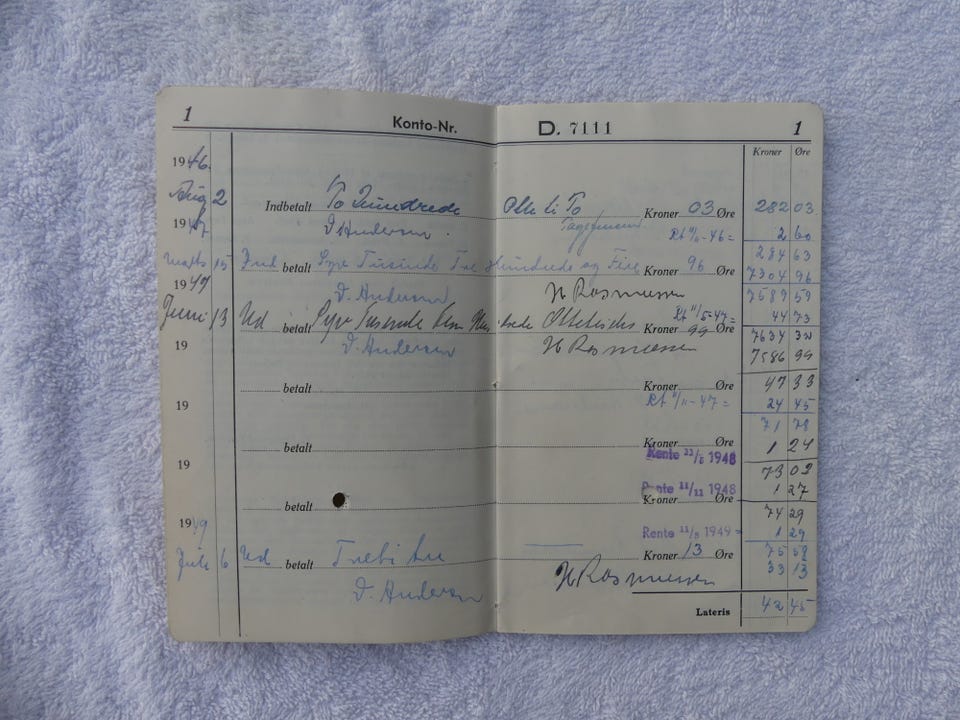 1 Konto-Nr. D. 7111 1
Kroner Øre
1946
Aug 2 Indbetalt To Hundrede Otte ti To Kroner 03 Øre 282 03
1947 D. Andersen Rt 11/11-46= 2 60
284 63
Marts 15 Ind betalt Syv Tusinde Tre Hundrede og Fire Kroner 96 Øre 7304 96
1947 D. Andersen H Rasmussen 7589 59
Rt 11/5-47= 44 73
Juni 13 Ud betalt Syv Tusende Fem Hundrede Kroner 99 Øre 7634 32
19 D. Andersen H Rasmussen 7586 99
betalt Kroner Øre 47 33
19 Rt 11/11-47= 24 45
71 78
betalt Kroner Øre 1 24
Rente 11/5 1948
19 73 02
Rente 11/11 1948 1 27
betalt Kroner Øre
74 29
1949 Rente 11/5 1949 1 29
Juli 6 Ud betalt Kroner 13 Øre 75 58
33 13
D. Andersen H Rasmussen
Lateris 42 45